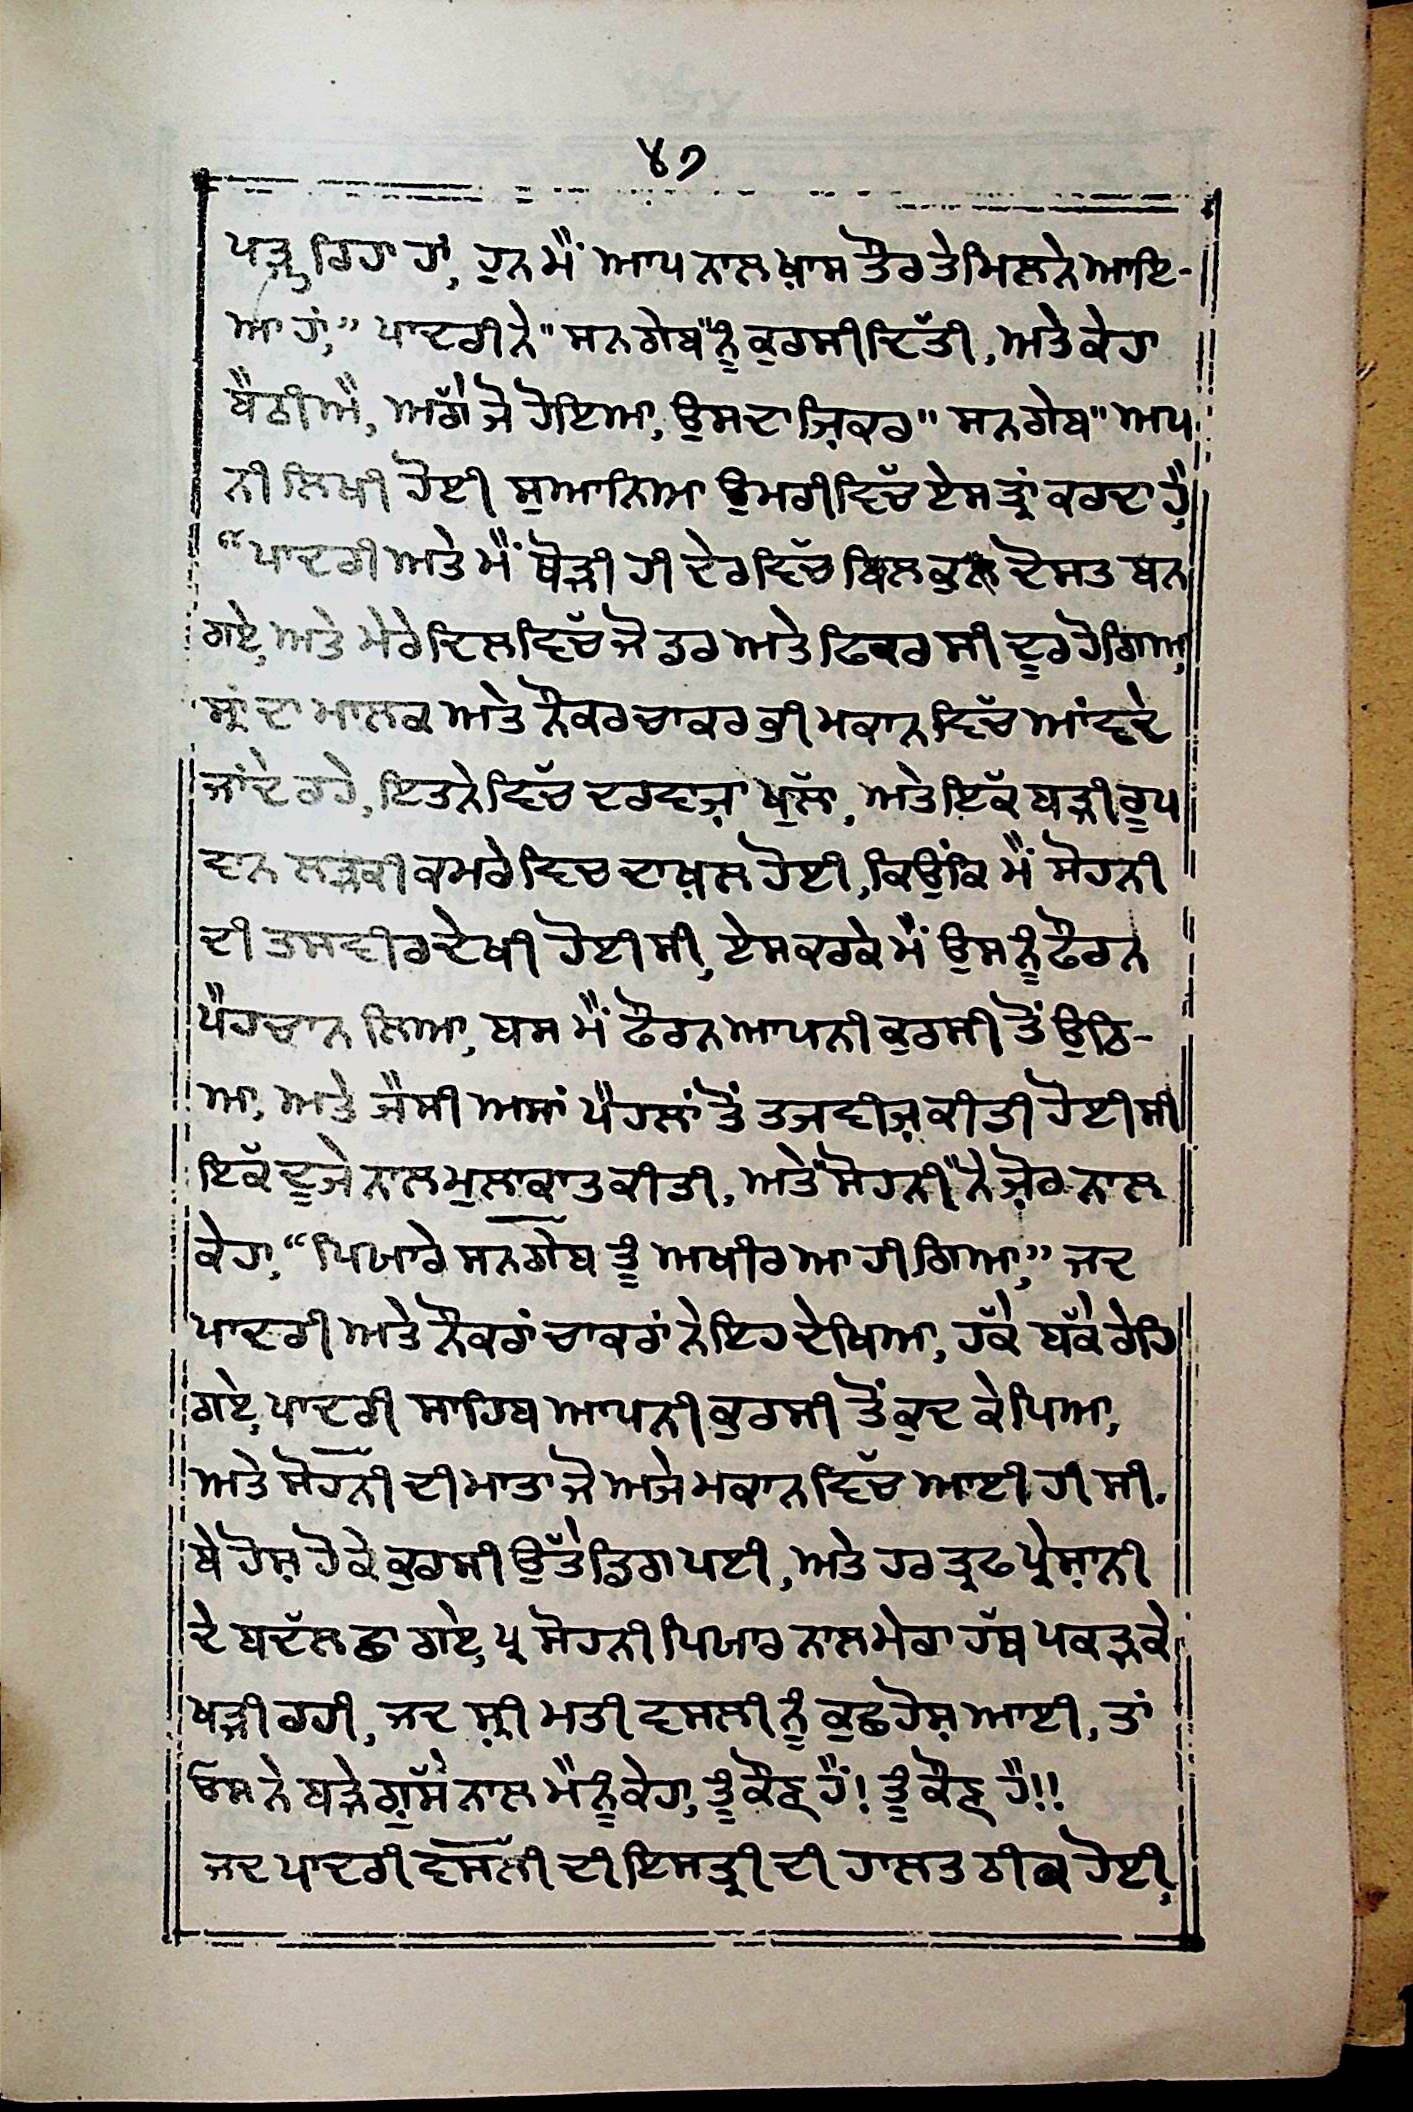 ੪੭
ਪੜ੍ਹ ਰਿਹਾ ਹਾਂ, ਹੁਨ ਮੈਂ ਆਪ ਨਾਲ ਖ਼ਾਸ ਤੌਰ ਤੇ ਮਿਲਨੇ ਆਇ-
ਆ ਹਾਂ,” ਪਾਦਰੀ ਨੇ "ਸਨਗੇਬ" ਨੂੰ ਕੁਰਸੀ ਦਿੱਤੀ, ਅਤੇ ਕੇਹਾ
ਬੈਠੀਐ, ਅੱਗੇ ਜੋ ਹੋਇਆ, ਉਸਦਾ ਜ਼ਿਕਰ "ਸਨਗੇਬ" ਅਪ
ਨੀ ਲਿਖੀ ਹੋਈ ਸੁਆਨਿਆ ਉਮਰੀ ਵਿੱਚ ਏਸ ਤ੍ਰਾਂ ਕਰਦਾ ਹੈ,
“ਪਾਦਰੀ ਅਤੇ ਮੈਂ ਥੋੜੀ ਹੀ ਦੇਰ ਵਿੱਚ ਬਿਲਕੁਲ ਦੋਸਤ ਬਨ
ਗਏ, ਅਤੇ ਮੇਰੇ ਦਿਲ ਵਿੱਚ ਜੋ ਡਰ ਅਤੇ ਫਿਕਰ ਸੀ ਦੂਰ ਹੋਗਿਆ,
ਦਾ ਮਾਲਕ ਅਤੇ ਨੌਕਰ ਚਾਕਰ ਭੀ ਮਕਾਨ ਵਿੱਚ ਆਂਵਦੇ
ਜਾਂਦੇ ਰਹੇ, ਇਤਨੇ ਵਿੱਚ ਦਰਵਾਜ਼ਾ ਖੁਲਾੱ, ਅਤੇ ਇੱਕ ਬੜੀ ਰੂਪ
ਵਾਨ ਲੜਕੀ ਕਮਰੇ ਵਿਚ ਦਾਖ਼ਲ ਹੋਈ, ਕਿਉਂਕਿ ਮੈਂ ਸੋਹਨੀ
ਦੀ ਤਸਵੀਰ ਦੇਖੀ ਹੋਈ ਸੀ, ਏਸ ਕਰਕੇ ਮੈਂ ਉਸ ਨੂੰ ਫੌਰਨ
ਪੈਹਚਾਨ ਲਿਆ, ਬਸ ਮੈਂ ਫੌਰਨ ਆਪਨੀ ਕੁਰਸੀ ਤੋਂ ਉਠਿ-
ਆ, ਅਤੇ ਜੈਸੀ ਅਸਾਂ ਪੈਹਲਾਂ ਤੋਂ ਤਜਵੀਜ਼ ਕੀਤੀ ਹੋਈ ਸੀ
ਇੱਕ ਦੂਜੇ ਨਾਲ ਮੁਲਾਕਾਤ ਕੀਤੀ, ਅਤੇ "ਸੋਹਨੀ" ਨੇ ਜ਼ੋਰ ਨਾਲ
ਕੇਹਾ, “ਪਿਯਾਰੇ ਸਨਗੇਬ ਤੂੰ ਅਖੀਰ ਆ ਹੀ ਗਿਆ,” ਜਦ
ਪਾਦਰੀ ਅਤੇ ਨੌਕਰਾਂ ਚਾਕਰਾਂ ਨੇ ਇਹ ਦੇਖਿਆ, ਹੱਕੇ ਬੱਕੇ ਰੇਹਿ
ਗਏ, ਪਾਦਰੀ ਸਾਹਿਬ ਆਪਨੀ ਕੁਰਸੀ ਤੋਂ ਕੁਦ ਕੇ ਪਿਆ,
ਅਤੇ ਸੋਹਨੀ ਦੀ ਮਾਤਾ ਜੋ ਅਜੇ ਮਕਾਨ ਵਿੱਚ ਆਈ ਹੀ ਸੀ.
ਬੇ ਹੋਸ਼ ਹੋਕੇ ਕੁਰਸੀ ਉੱਤੇ ਡਿਗ ਪਈ, ਅਤੇ ਹਰ ਤ੍ਰਫ ਪ੍ਰੇਸ਼ਾਨੀ
ਦੇ ਬਦੱਲ ਛਾ ਗਏ, ਪ੍ਰ ਸੋਹਨੀ ਪਿਯਾਰ ਨਾਲ ਮੇਰਾ ਹੱਥ ਪਕੜਕੇ
ਖੜੀ ਰਹੀ, ਜਦ ਸ਼੍ਰੀ ਮਤੀ ਵਸਲੀ ਨੂੰ ਕੁਛ ਹੋਸ਼ ਆਈ, ਤਾਂ
ਓਸਨੇ ਬੜੇ ਗੁੱਸੇ ਨਾਲ ਮੈਨੂੰ ਕੇਹਾ, ਤੂੰ ਕੌਣ ਹੈਂ! ਤੂੰ ਕੌਣ ਹੈਂ!!
ਜਦ ਪਾਦਰੀ ਵੱਸਲੀ ਦੀ ਇਸਤ੍ਰੀ ਦੀ ਹਾਲਤ ਠੀਕ ਹੋਈ,